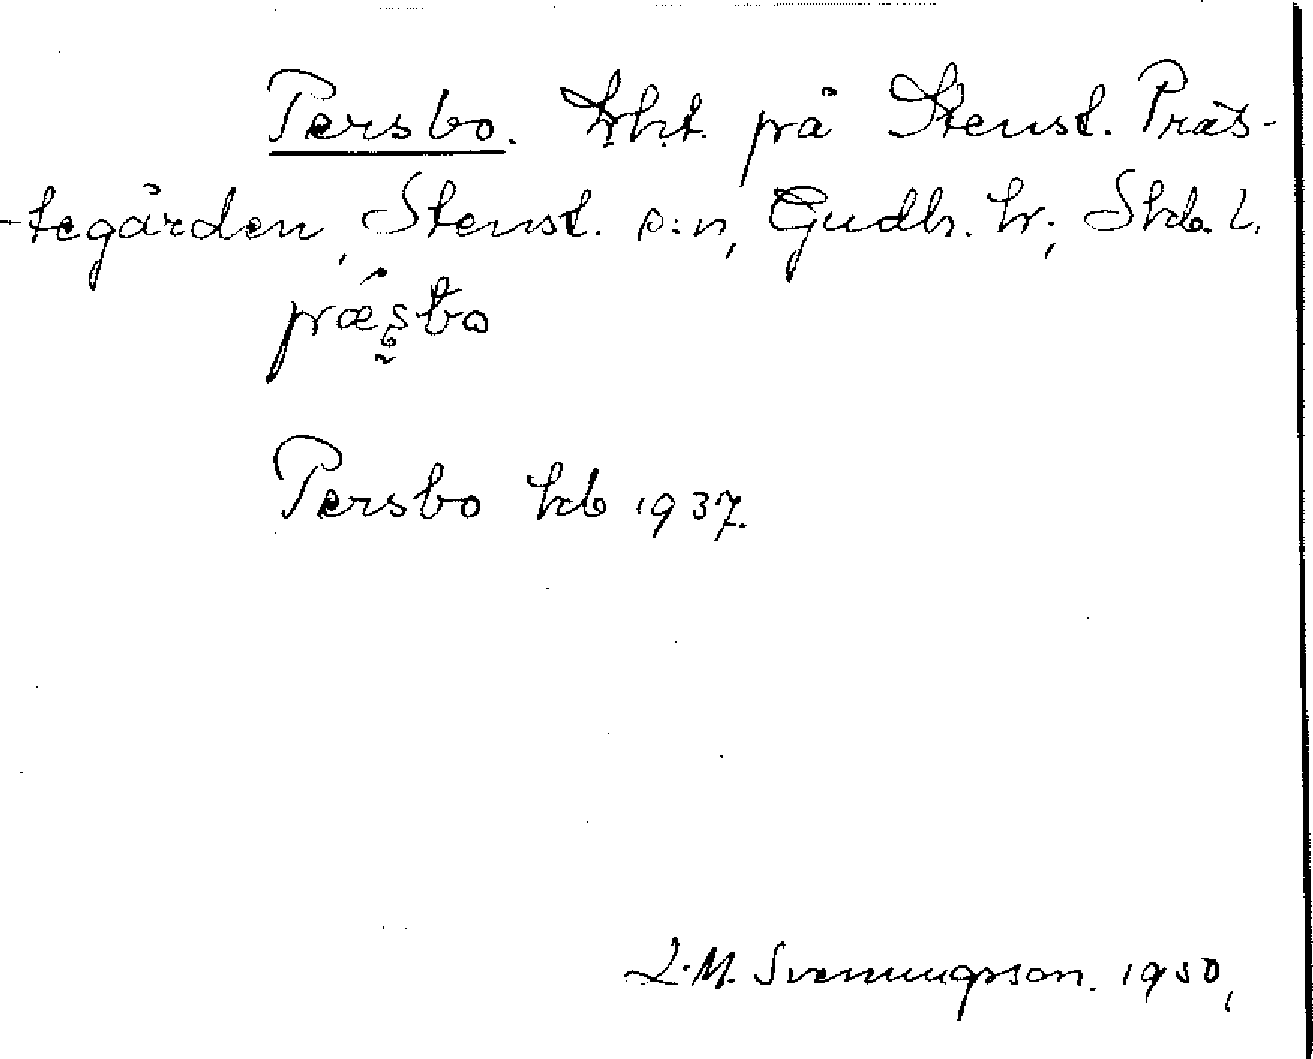 Persbo. lht. på Stenst. Präs-
-tegården, Stenst. s:n, Gudh. hr; Skb. l.
Persbo kb 1937.
L.M. Svenungsson. 1950,